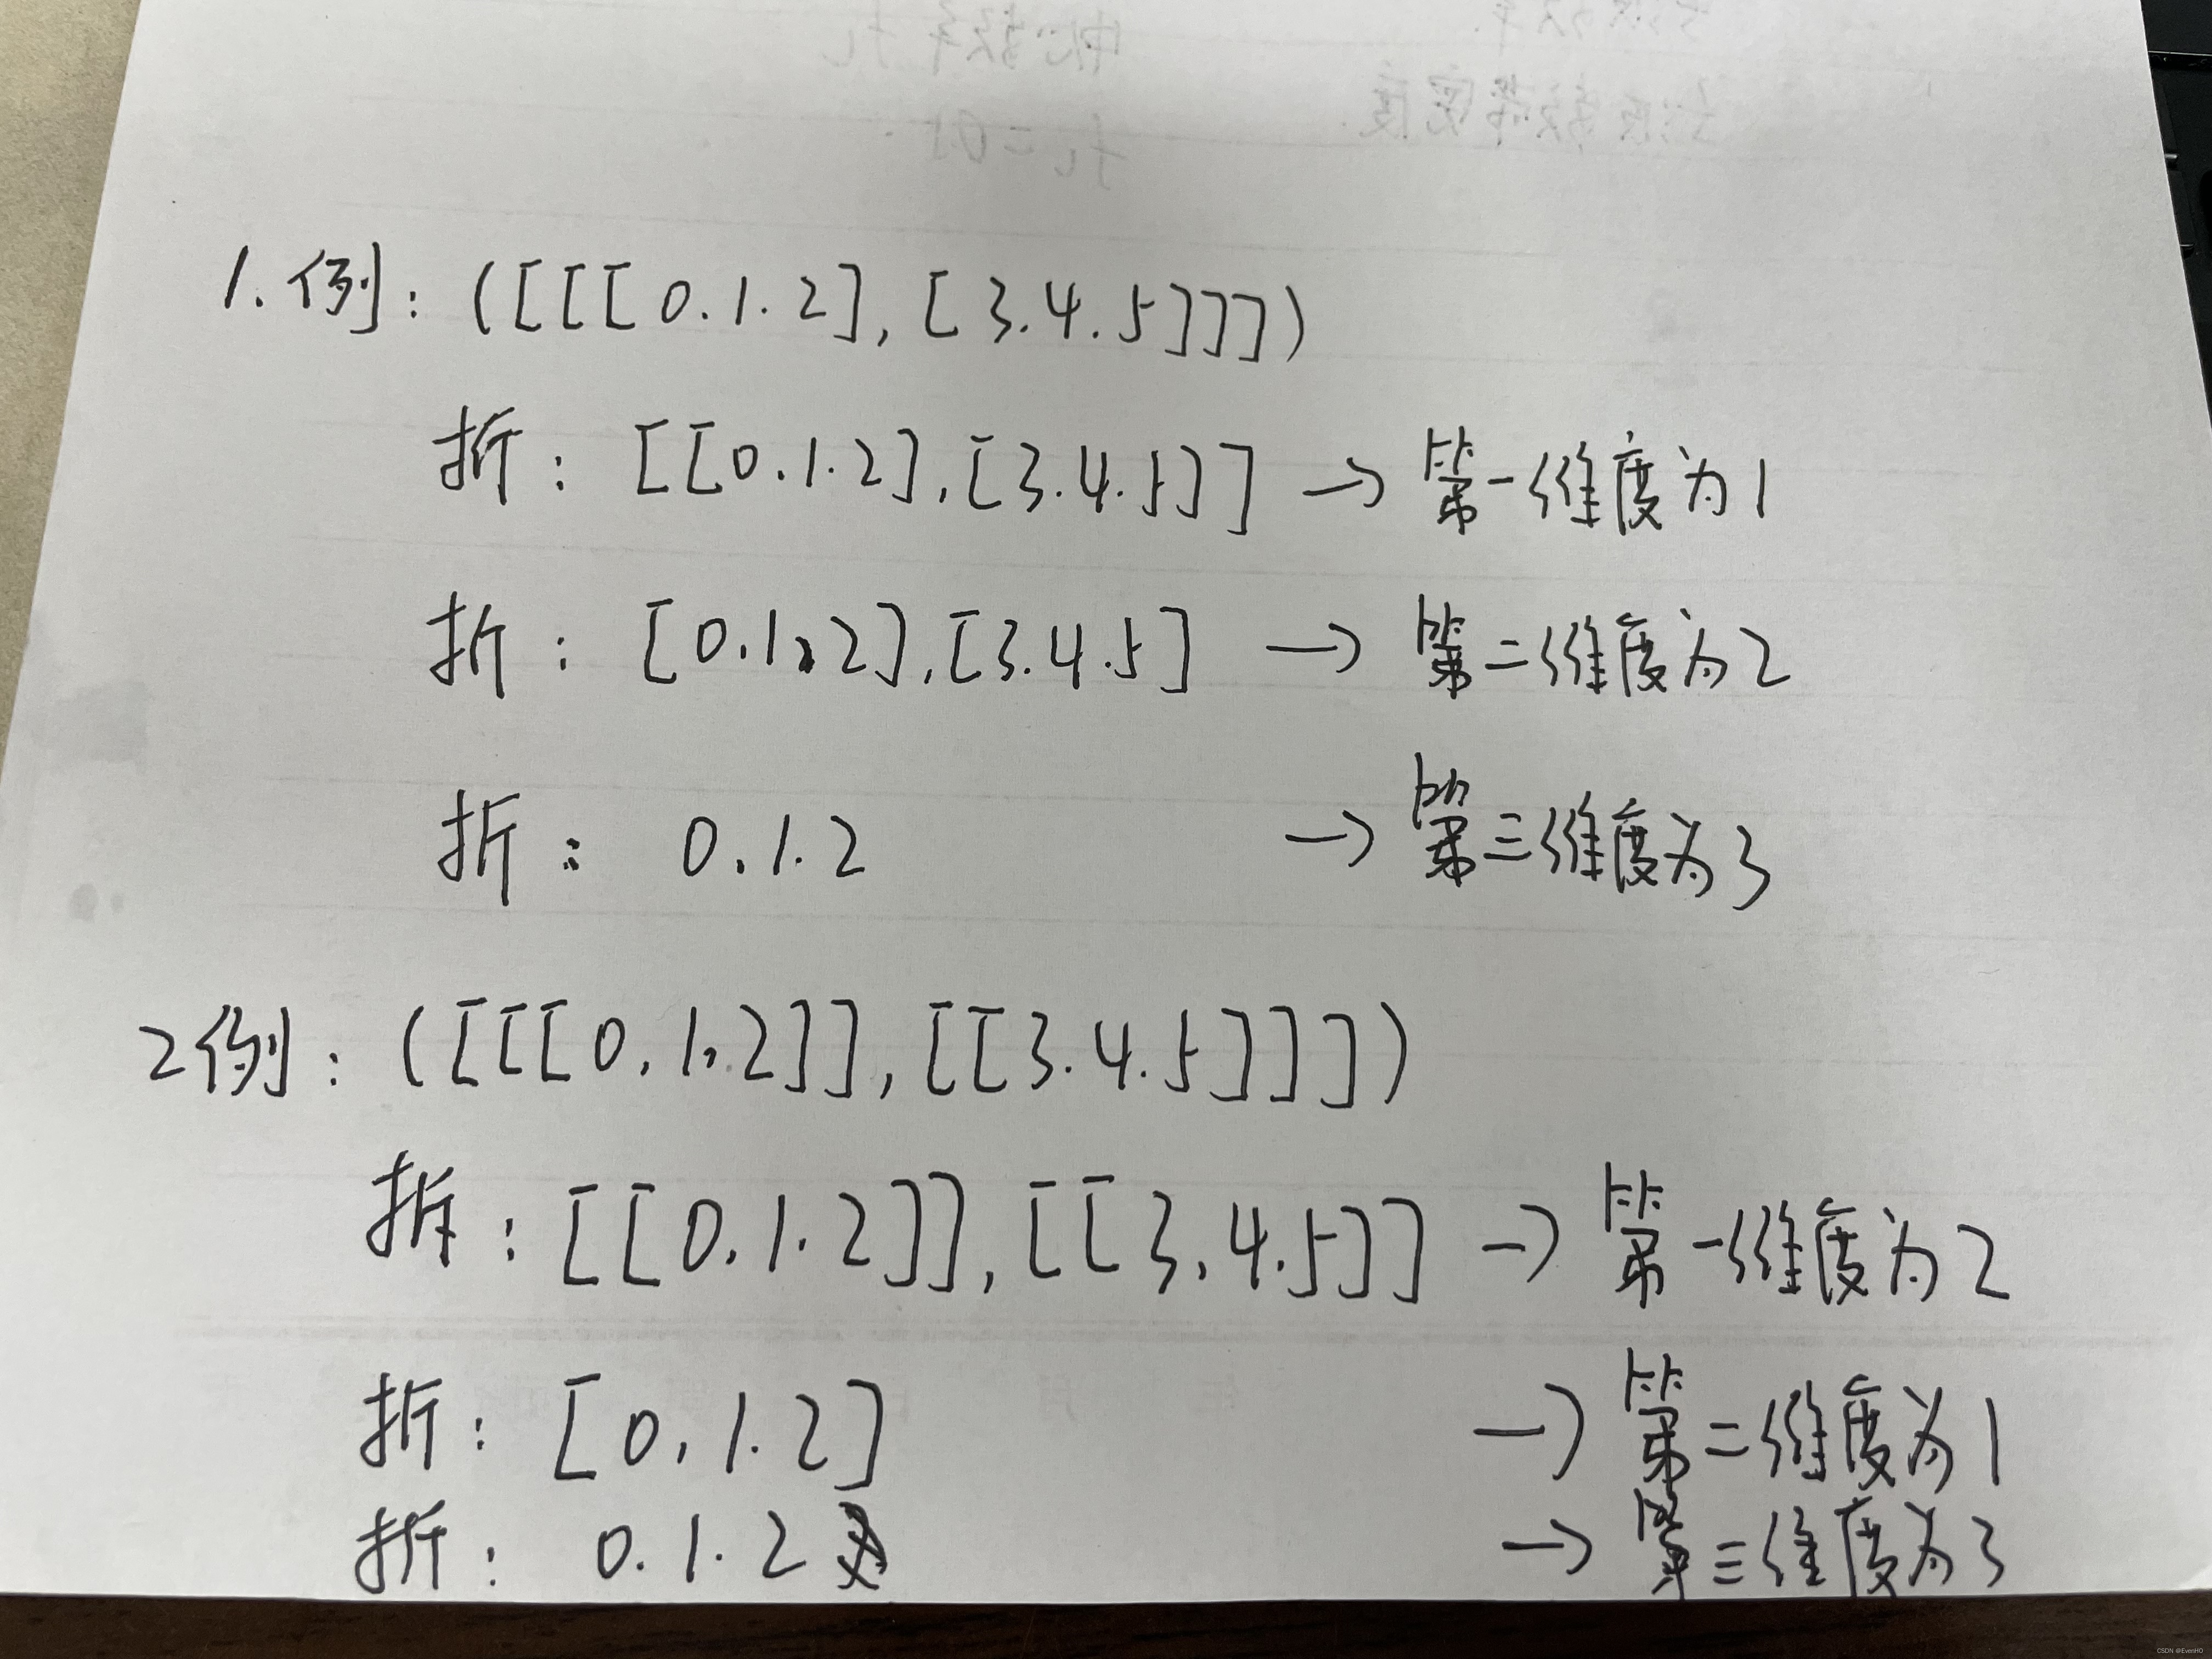 1.例：([[[0.1.2],[3.4.5]]])
折：[[0.1.2].[3.4.5]] → 第一维度为1
折：[0.1.2].[3.4.5] → 第二维度为2
折：0.1.2 → 第三维度为3
2例：([[[0.1.2]],[[3.4.5]]])
拆：[[0.1.2]],[[3.4.5]] → 第一维度为2
折：[0.1.2] → 第二维度为1
折：0.1.2 → 第三维度为3
CSDN @EvenHO